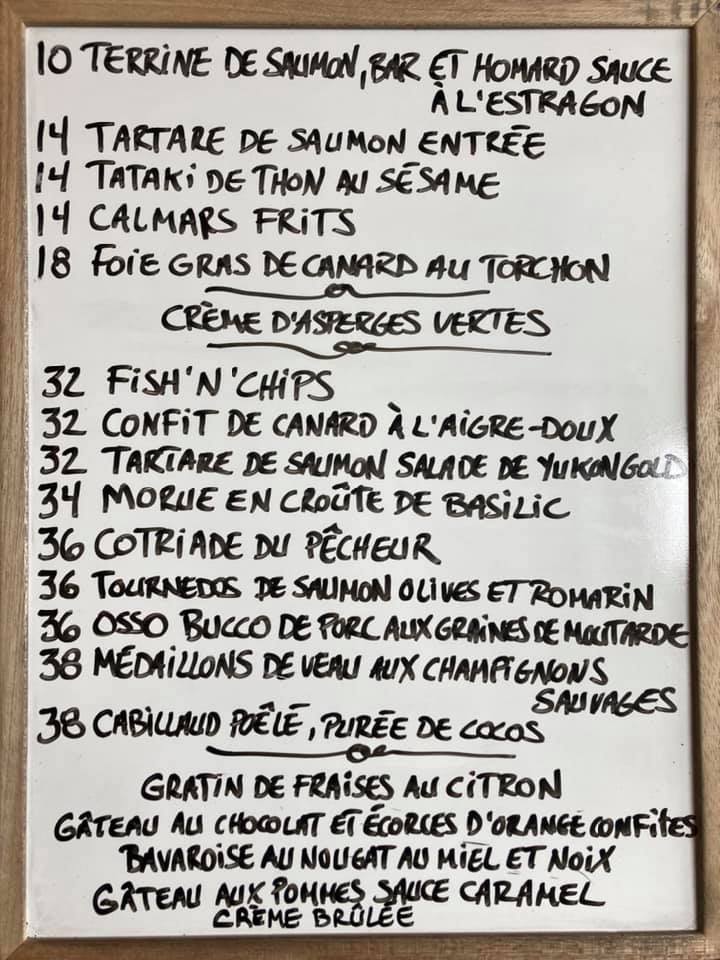 10 TERRINE DE SAUMON, BAR ET HOMARD SAUCE
À L'ESTRAGON
14 TARTARE DE SAUMON ENTRÉE
14 TATAKI DE THON AU SÉSAME
14 CALMARS FRITS
18 FOIE GRAS DE CANARD AU TORCHON
CRÈME D'ASPERGES VERTES
32 FISH'N'CHIPS
32 CONFIT DE CANARD À L'AIGRE-DOUX
32 TARTARE DE SAUMON SALADE DE YUKON GOLD
34 MORUE EN CROÛTE DE BASILIC
36 COTRIADE DU PÊCHEUR
36 TOURNEDOS DE SAUMON OLIVES ET ROMARIN
36 OSSO BUCCO DE PORC AUX GRAINES DE MOUTARDE
38 MÉDAILLONS DE VEAU AUX CHAMPIGNONS
SAUVAGES
38 CABILLAUD POÊLÉ, PURÉE DE COCOS
GRATIN DE FRAISES AU CITRON
GÂTEAU AU CHOCOLAT ET ÉCORCES D'ORANGE CONFITES
BAVAROISE AU NOUGAT AU MIEL ET NOIX
GÂTEAU AUX POMMES SAUCE CARAMEL
CRÈME BRÛLÉE